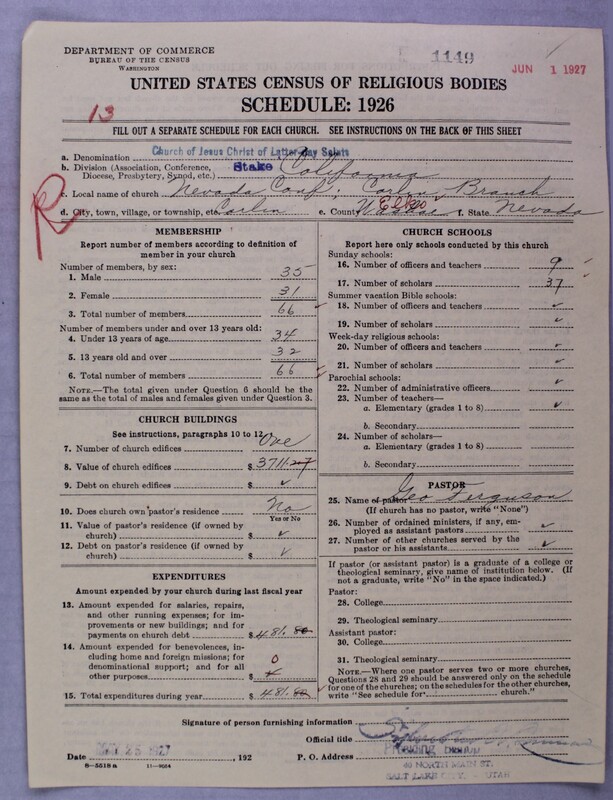 DEPARTMENT OF COMMERCE
BUREAU OF THE CENSUS
WASHINGTON
1149
JUN 1 1927
UNITED STATES CENSUS OF RELIGIOUS BODIES
SCHEDULE: 1926
13
FILL OUT A SEPARATE SCHEDULE FOR EACH CHURCH. SEE INSTRUCTIONS ON THE BACK OF THIS SHEET
a. Denomination Church of Jesus Christ of Latter-day Saints
b. Division (Association, Conference, Diocese, Presbytery, Synod, etc.) Stake California
c. Local name of church Nevada Conf; Carlin Branch
R
d. City, town, village, or township, etc. Carlin e. County Elko f. State Nevada
MEMBERSHIP
Report number of members according to definition of
member in your church
Number of members, by sex:
1. Male 35
2. Female 31
3. Total number of members 66
Number of members under and over 13 years old:
4. Under 13 years of age 34
5. 13 years old and over 32
6. Total number of members 66
NOTE.—The total given under Question 6 should be
the same as the total of males and females given under Question 3.
CHURCH BUILDINGS
See instructions, paragraphs 10 to 12
7. Number of church edifices One
8. Value of church edifices $3711.27
9. Debt on church edifices $ ✓
10. Does church own pastor's residence No
Yes or No
11. Value of pastor's residence (if owned by
church) $ ✓
12. Debt on pastor's residence (if owned by
church) $ ✓
EXPENDITURES
Amount expended by your church during last fiscal year
13. Amount expended for salaries, repairs,
and other running expenses; for im-
provements or new buildings; and for
payments on church debt $481.80
14. Amount expended for benevolences, in-
cluding home and foreign missions; for
denominational support; and for all
other purposes $ 0
15. Total expenditures during year $481.80
CHURCH SCHOOLS
Report here only schools conducted by this church
Sunday schools:
16. Number of officers and teachers 9
17. Number of scholars 37
Summer vacation Bible schools:
18. Number of officers and teachers ✓
19. Number of scholars ✓
Week-day religious schools:
20. Number of officers and teachers ✓
21. Number of scholars ✓
Parochial schools:
22. Number of administrative officers ✓
23. Number of teachers—
a. Elementary (grades 1 to 8) ✓
b. Secondary
24. Number of scholars—
a. Elementary (grades 1 to 8)
b. Secondary
PASTOR
25. Name of pastor Geo Ferguson
(If church has no pastor, write "None")
26. Number of ordained ministers, if any, em-
ployed as assistant pastors ✓
27. Number of other churches served by the
pastor or his assistants ✓
If pastor (or assistant pastor) is a graduate of a college or
theological seminary, give name of institution below. (If
not a graduate, write "No" in the space indicated.)
Pastor:
28. College
29. Theological seminary
Assistant pastor:
30. College
31. Theological seminary
NOTE.—Where one pastor serves two or more churches,
Questions 28 and 29 should be answered only on the schedule
for one of the churches; on the schedules for the other churches,
write "See schedule for church."
Signature of person furnishing information
Official title
Date 25 1927 , 192 P. O. Address
NORTH MAIN ST.
SALT LAKE CITY, UTAH
8—5518a 11—9024